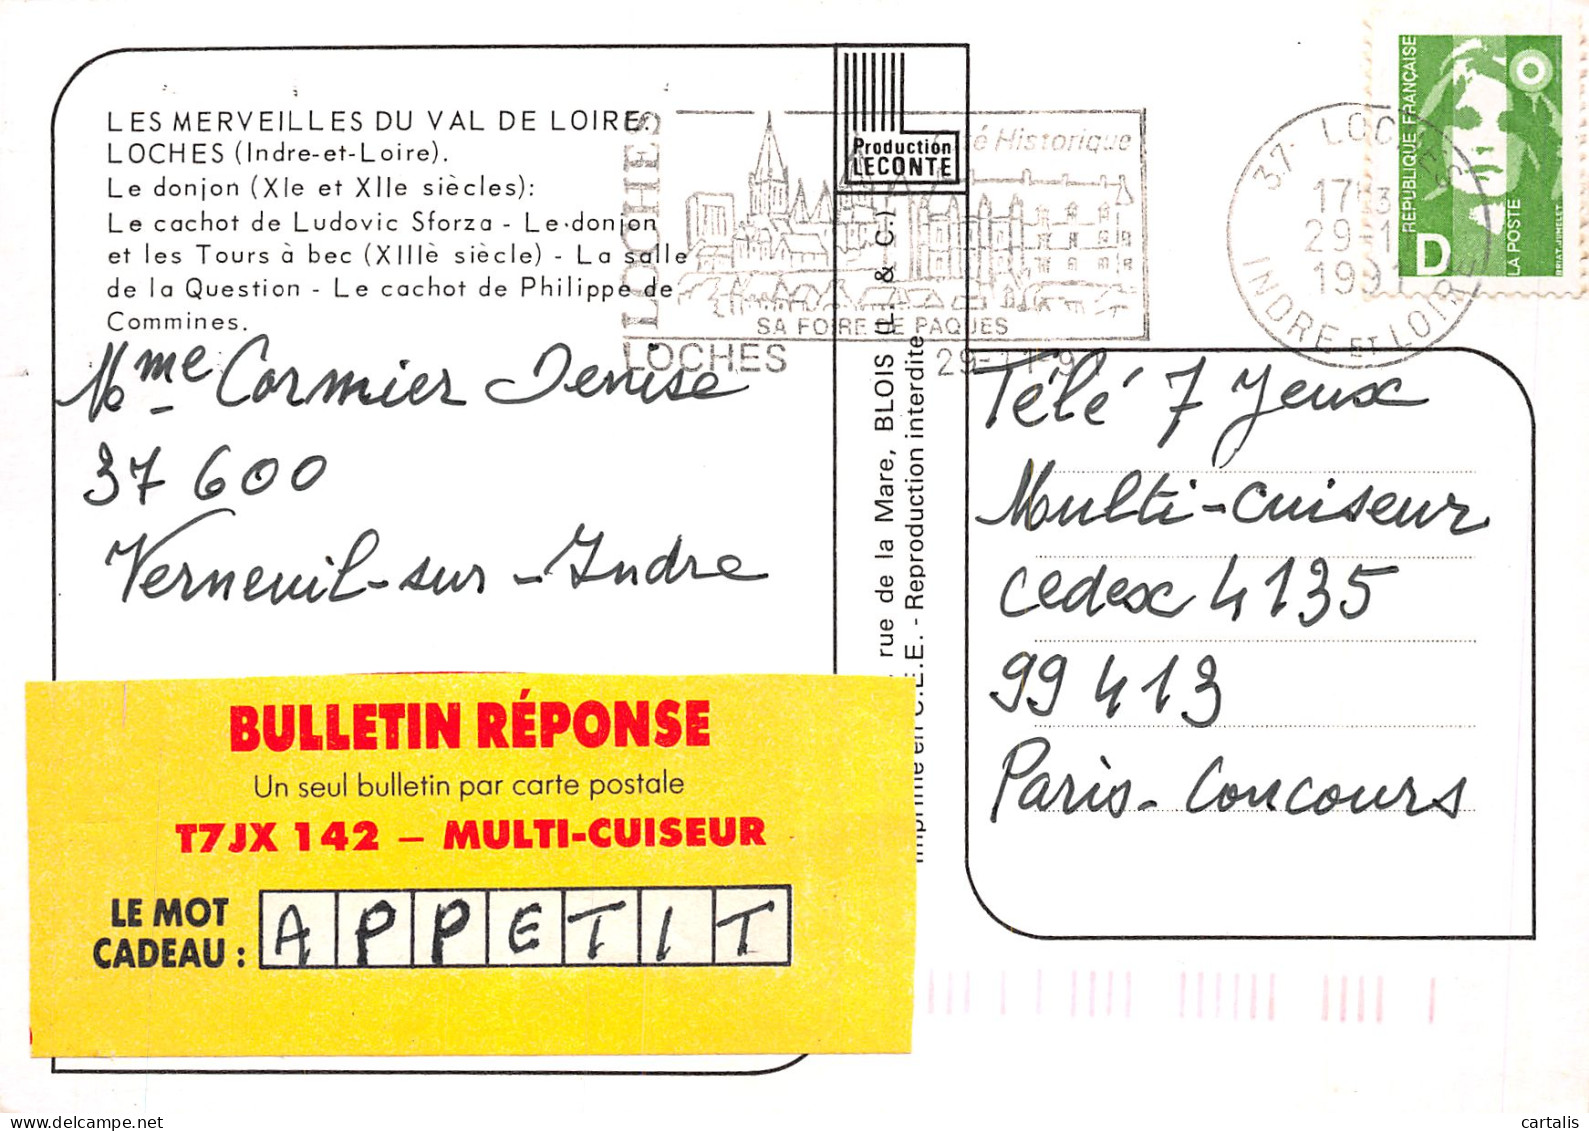 LES MERVEILLES DU VAL DE LOIRE.
LOCHES (Indre-et-Loire).
Le donjon (XIe et XIIe siècles):
Le cachot de Ludovic Sforza - Le donjon
et les Tours à bec (XIIIè siècle) - La salle
de la Question - Le cachot de Philippe de
Commines.
Mme Cormier Denise
37 600
Verneuil-sur-Indre
BULLETIN RÉPONSE
Un seul bulletin par carte postale
T7JX 142 – MULTI-CUISEUR
LE MOT
CADEAU :
APPETIT
Production
LECONTE
LOCHES
Historique
SA FOIRE DE PAQUES
LOCHES
29-11-9
rue de la Mare, BLOIS (L. & C.)
Imprimé en C.E.E. - Reproduction interdite
37 LOCHES
17
29-1
1991
INDRE ET LOIRE
REPUBLIQUE FRANÇAISE
D
LA POSTE
Télé 7 Jeux
Multi-cuiseur
cedex 4135
99 413
Paris-Concours
cartalis